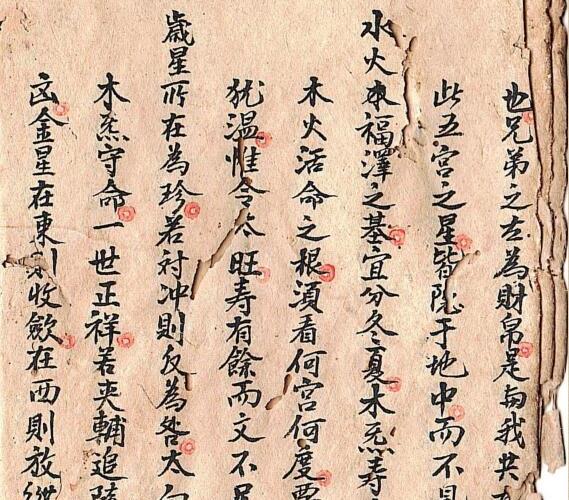 也兄弟之左為財帛是我共
此五宮之星皆于地中而不
水火本福澤之基宜分冬夏木炁寿
木火活命之根須看何宮何度要
犹温惟令太旺寿有餘而文不足
歲星所在為珍若対冲則反為咎太白
木炁守命一世正祥若夹輔追
金星在東則收斂在西則放縱